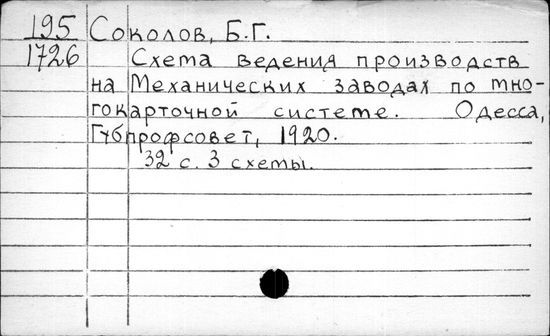 195 Соколов, Б.Г.
1726 Схема ведения производств
на Механических заводах по мно-
гокарточной системе. Одесса,
Губпрофсовет, 1920.
32 с. 3 схемы.